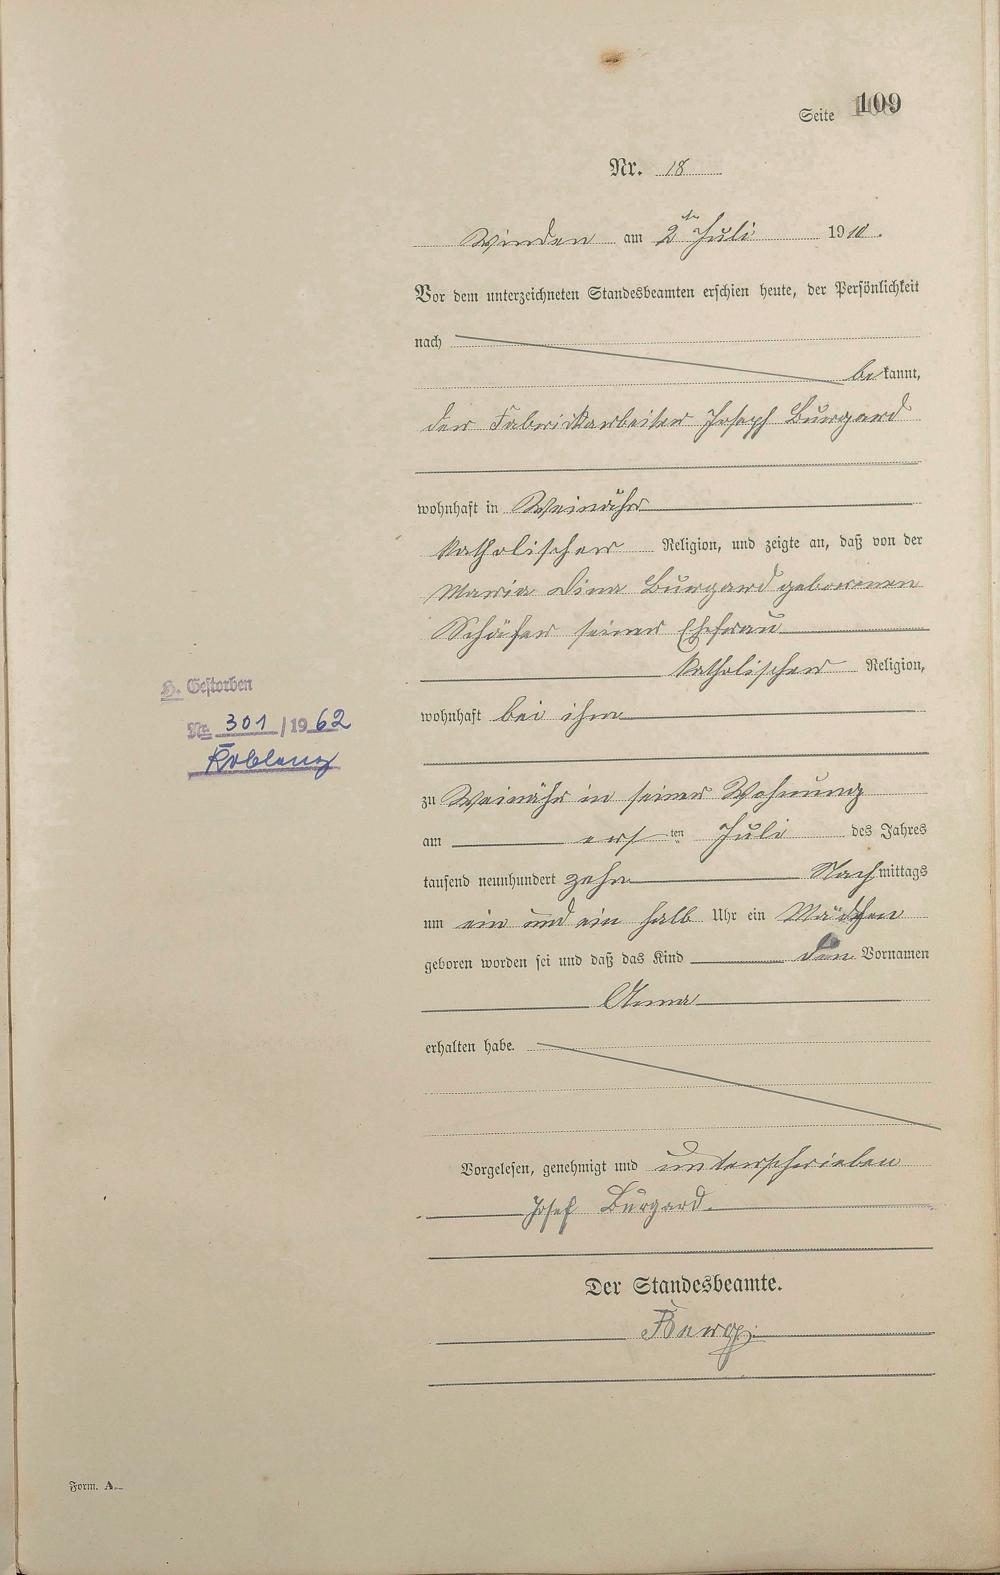 Seite 109
Nr. 18
Winden am 2ten Juli 1910.
Vor dem unterzeichneten Standesbeamten erschien heute, der Persönlichkeit
nach
bekannt,
der Fabrickarbeiter Joseph Burgard
wohnhaft in Weinähr
katholischer Religion, und zeigte an, daß von der
Maria Dina Burgard geborenen
Schäfer seiner Ehefrau
katholischer Religion,
wohnhaft bei ihm
zu Weinähr in seiner Wohnung
am ersten Juli des Jahres
tausend neunhundert zehn Nachmittags
um ein und ein halb Uhr ein Mädchen
geboren worden sei und daß das Kind den Vornamen
Anna
erhalten habe.
Vorgelesen, genehmigt und unterschrieben
Josef Burgard.
Der Standesbeamte.
H. Gestorben
Nr. 301/1962
Koblenz
Form. A.